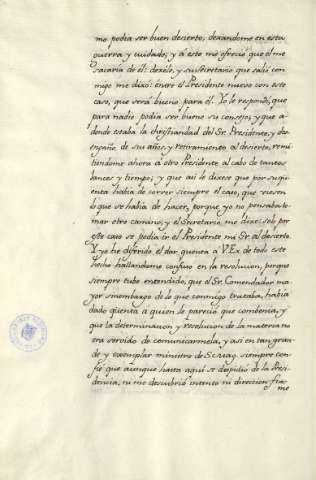 mo podia ser buen desierto, dexandome en esta
guerra y cuidado; y á esto me ofreció que él me
sacaria de él: dexélo, y su Secretario que salió con
migo me dixo: entre el Presidente nuevo con este
caso, que será bueno para él. Yo le respondí, que
para nadie podia ser bueno su consejo; y que a
donde estaba la christiandad del Sr. Presidente, y des
engaño de sus años, y retiramiento al desierto, remi
tiendome ahora á otro Presidente al cabo de tantos
lances y tiempo; y que así le dixese que por su
cuenta habia de correr siempre el caso, que viesen
lo que se habia de hacer, porque yo no pensaba to
mar otro camino; y el Secretario me dixo: solo por
este caso se podia ir el Presidente mi Sr. al desierto.
Y yo he diferido el dar quenta á V. Ex. de todo este
hecho hallandome confuso en la resolucion, porque
siempre tube entendido, que el Sr. Comendador ma
yor sinembargo de lo que conmigo trataba, habia
dado quenta a quien le pareció que combenia, y
que la determinacion y resolucion de la materia no
era servido de comunicarmela, y así en tan gran
de y exemplar ministro de S. M. siempre con
fié que aunque hasta aquí se despidió de la Presi
dencia, ni me descubrió intento ni direccion
mo